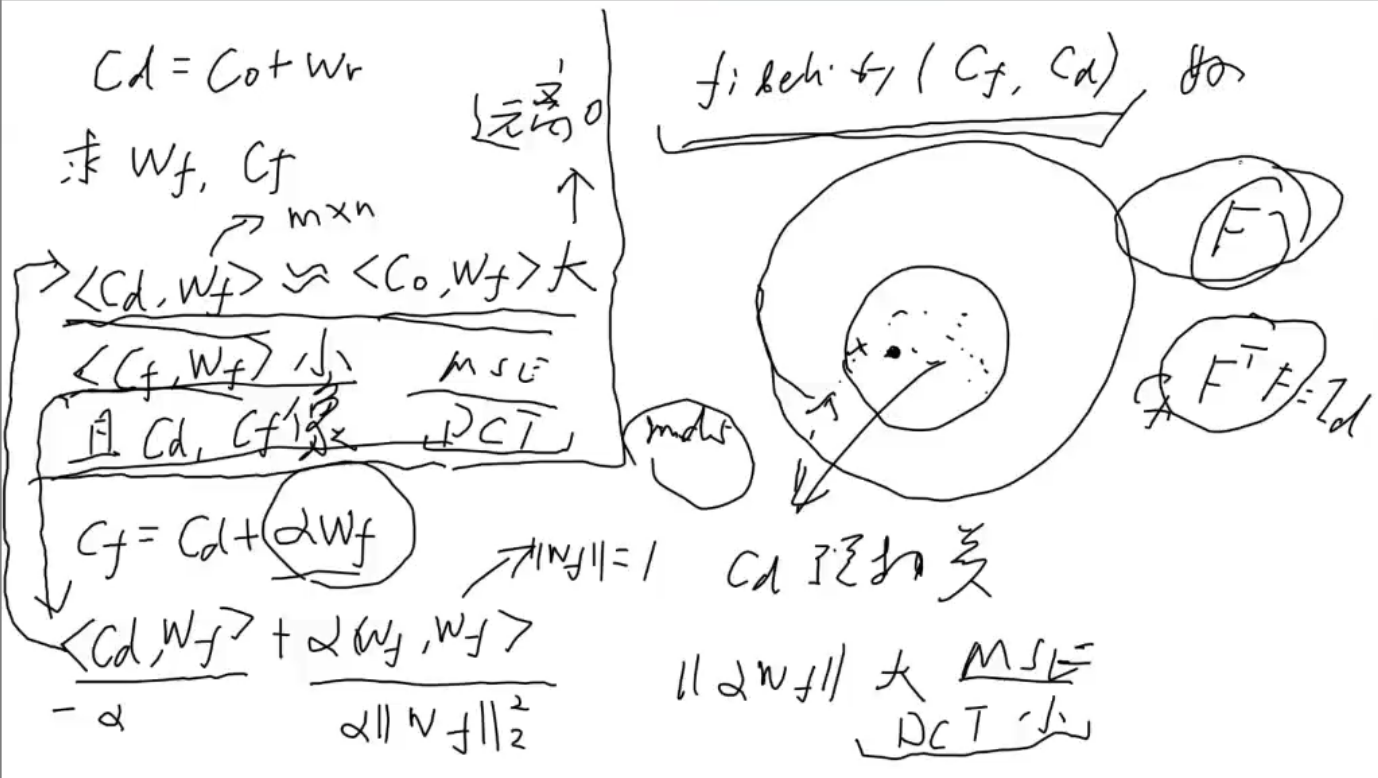 Cd = Co + Wr
求 Wf, Cf
→ m×n
远离0
<Cd, Wf> ≈ <Co, Wf> 大
<Cf, Wf> 小 MSE
且 Cd, Cf 像 DCT
Cf = Cd + αWf
→ ||Wf|| = 1
<Cd, Wf> + α<Wf, Wf>
-α α||Wf||₂²
fidelity (Cf, Cd)
F
FᵀF = Id
Cd 强相关
||αWf|| 大 MSE
DCT 小